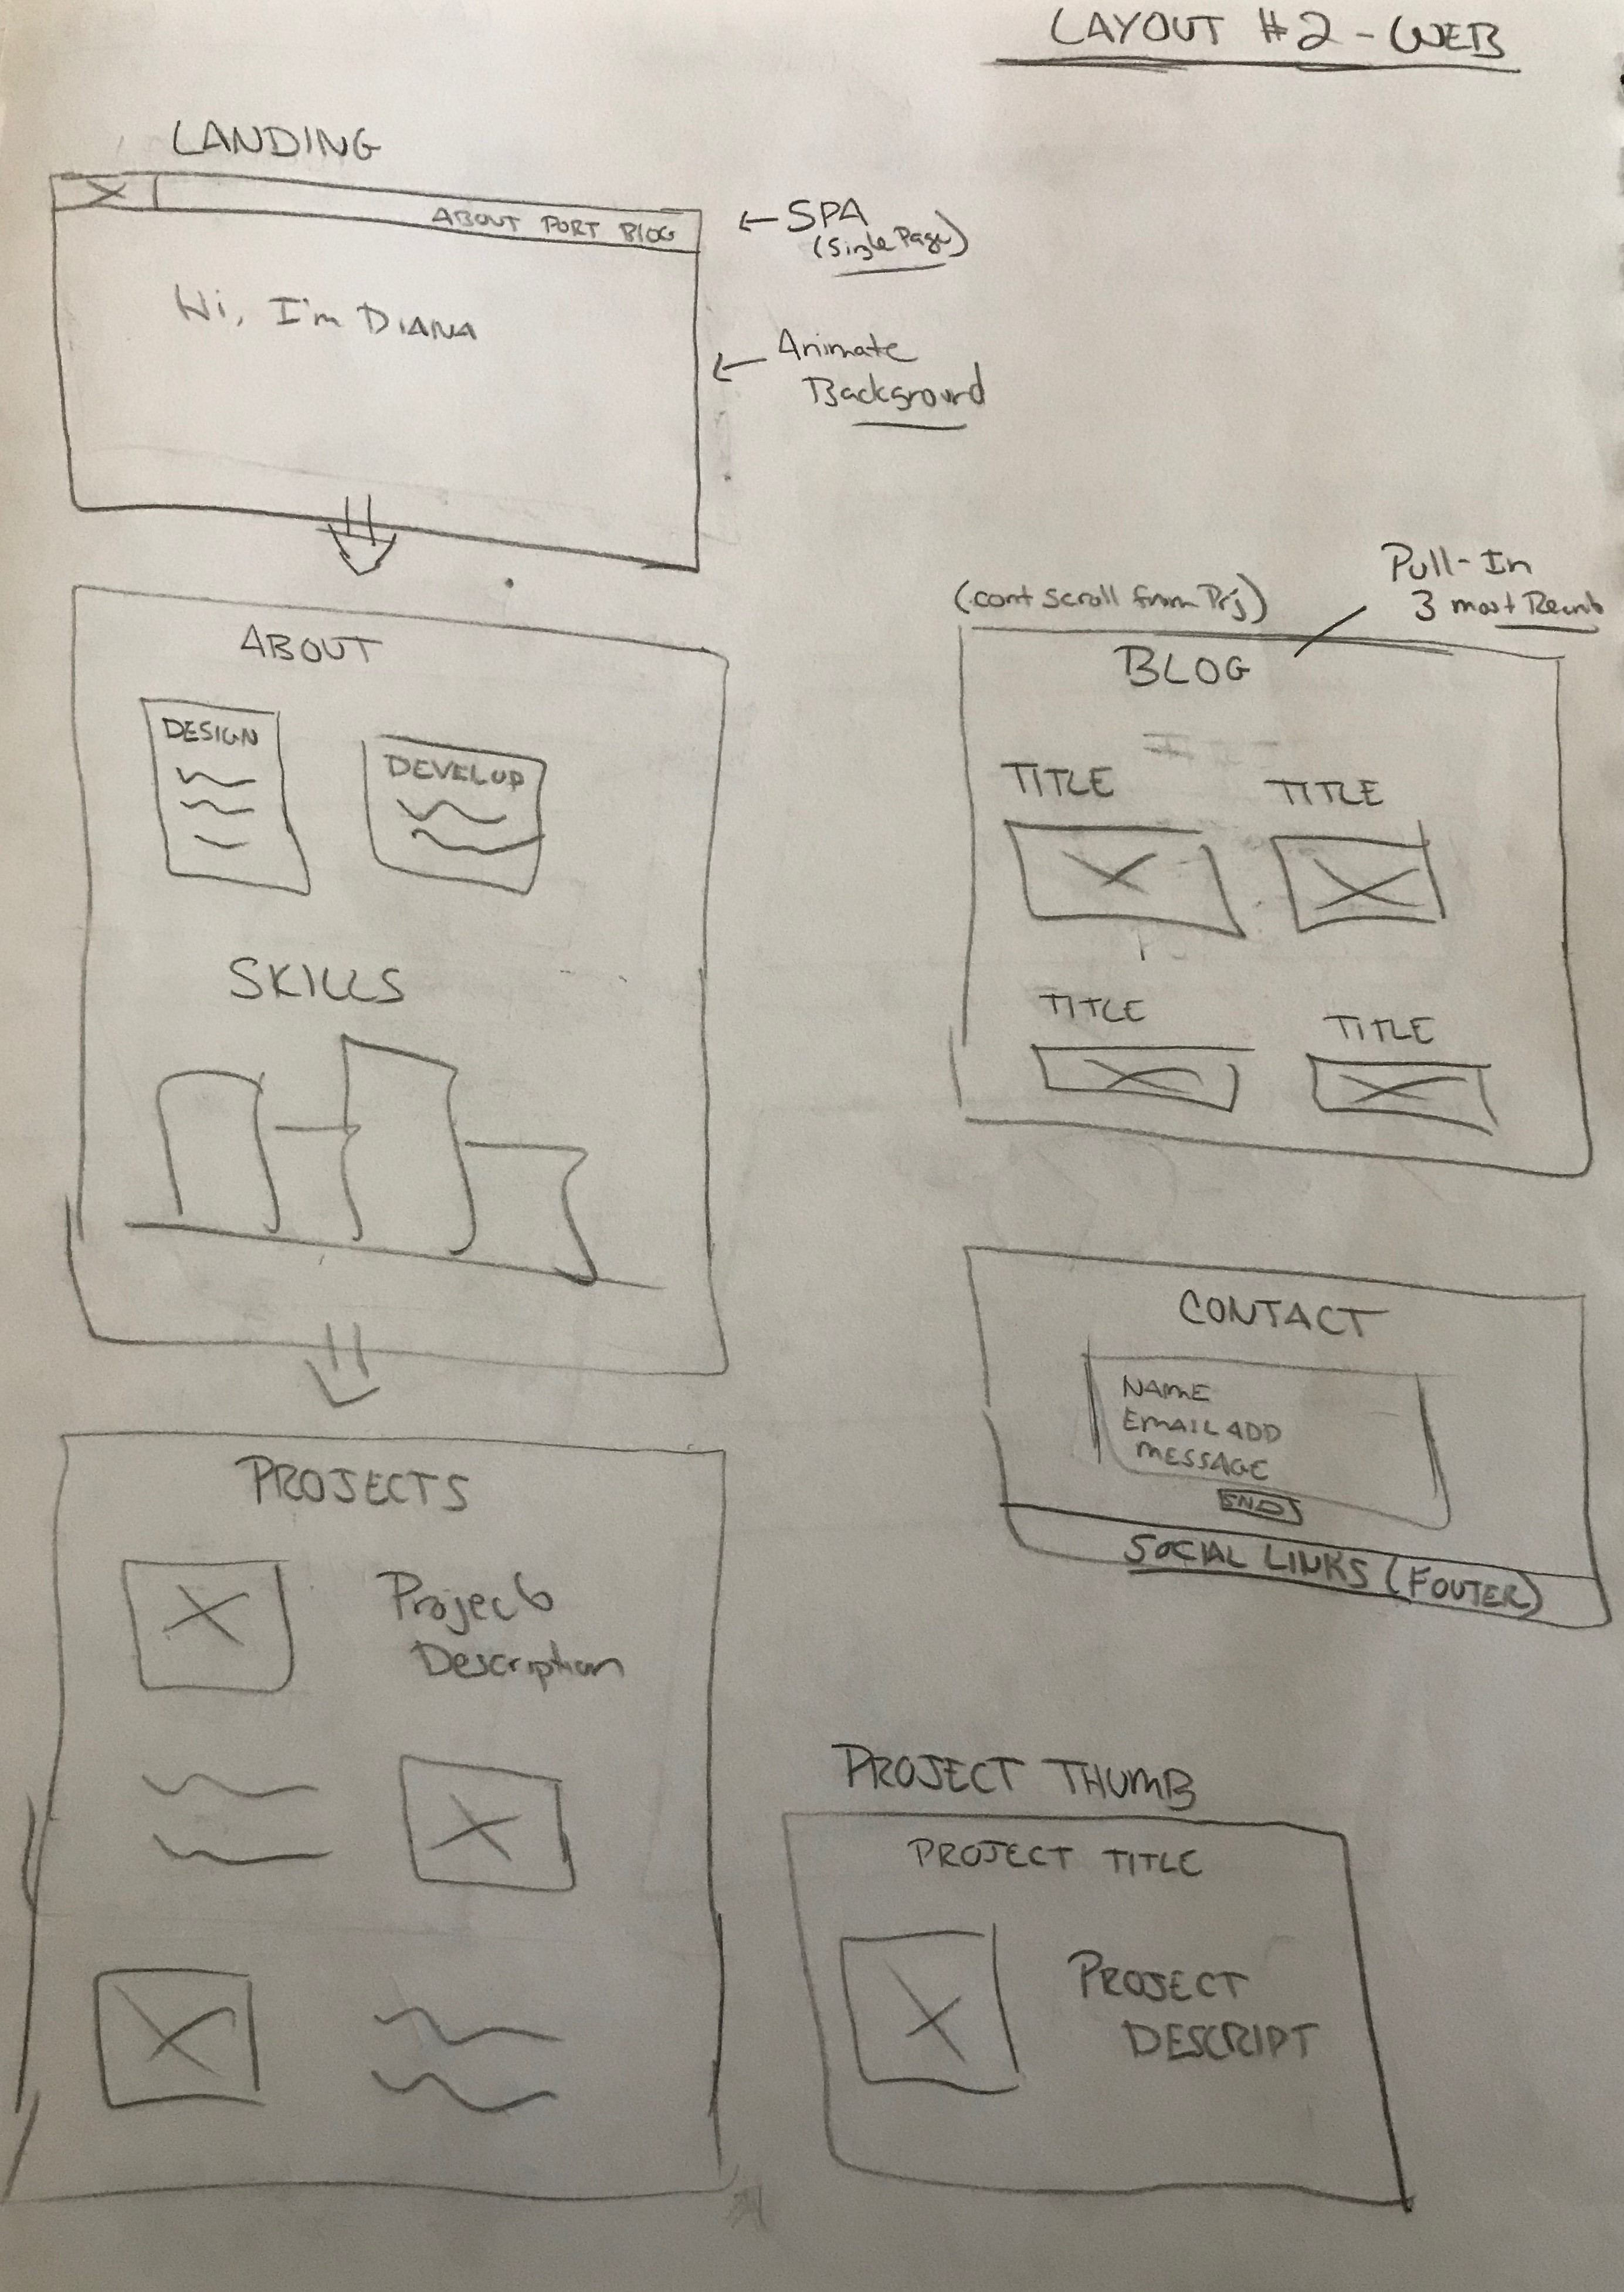 LAYOUT #2 - WEB
LANDING
ABOUT PORT BLOG
Hi, I'm DIANA
← SPA
(Single Page)
← Animate
Background
ABOUT
DESIGN
DEVELOP
SKILLS
PROJECTS
Project
Description
(cont scroll from Prj)
Pull-In
3 most Recent
BLOG
TITLE
TITLE
TITLE
TITLE
CONTACT
NAME
EMAIL ADD
MESSAGE
SEND
SOCIAL LINKS (FOOTER)
PROJECT THUMB
PROJECT TITLE
PROJECT
DESCRIPT